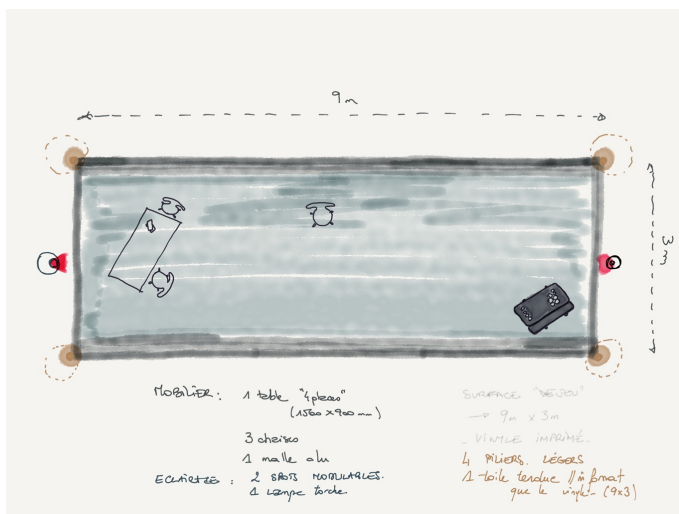 9m
3m
MOBILIER : 1 table "4 places"
(1500 x 900 mm)
3 chaises
1 malle alu
ECLAIRAGE : 2 SPOTS MODULABLES.
1 LAMPE TORCHE.
SURFACE "DE JOU"
→ 9m x 3m
- VINYLE IMPRIMÉ.
4 PILIERS. LÉGERS
1 toile tendue // in format
que le vinyle - (9x3)